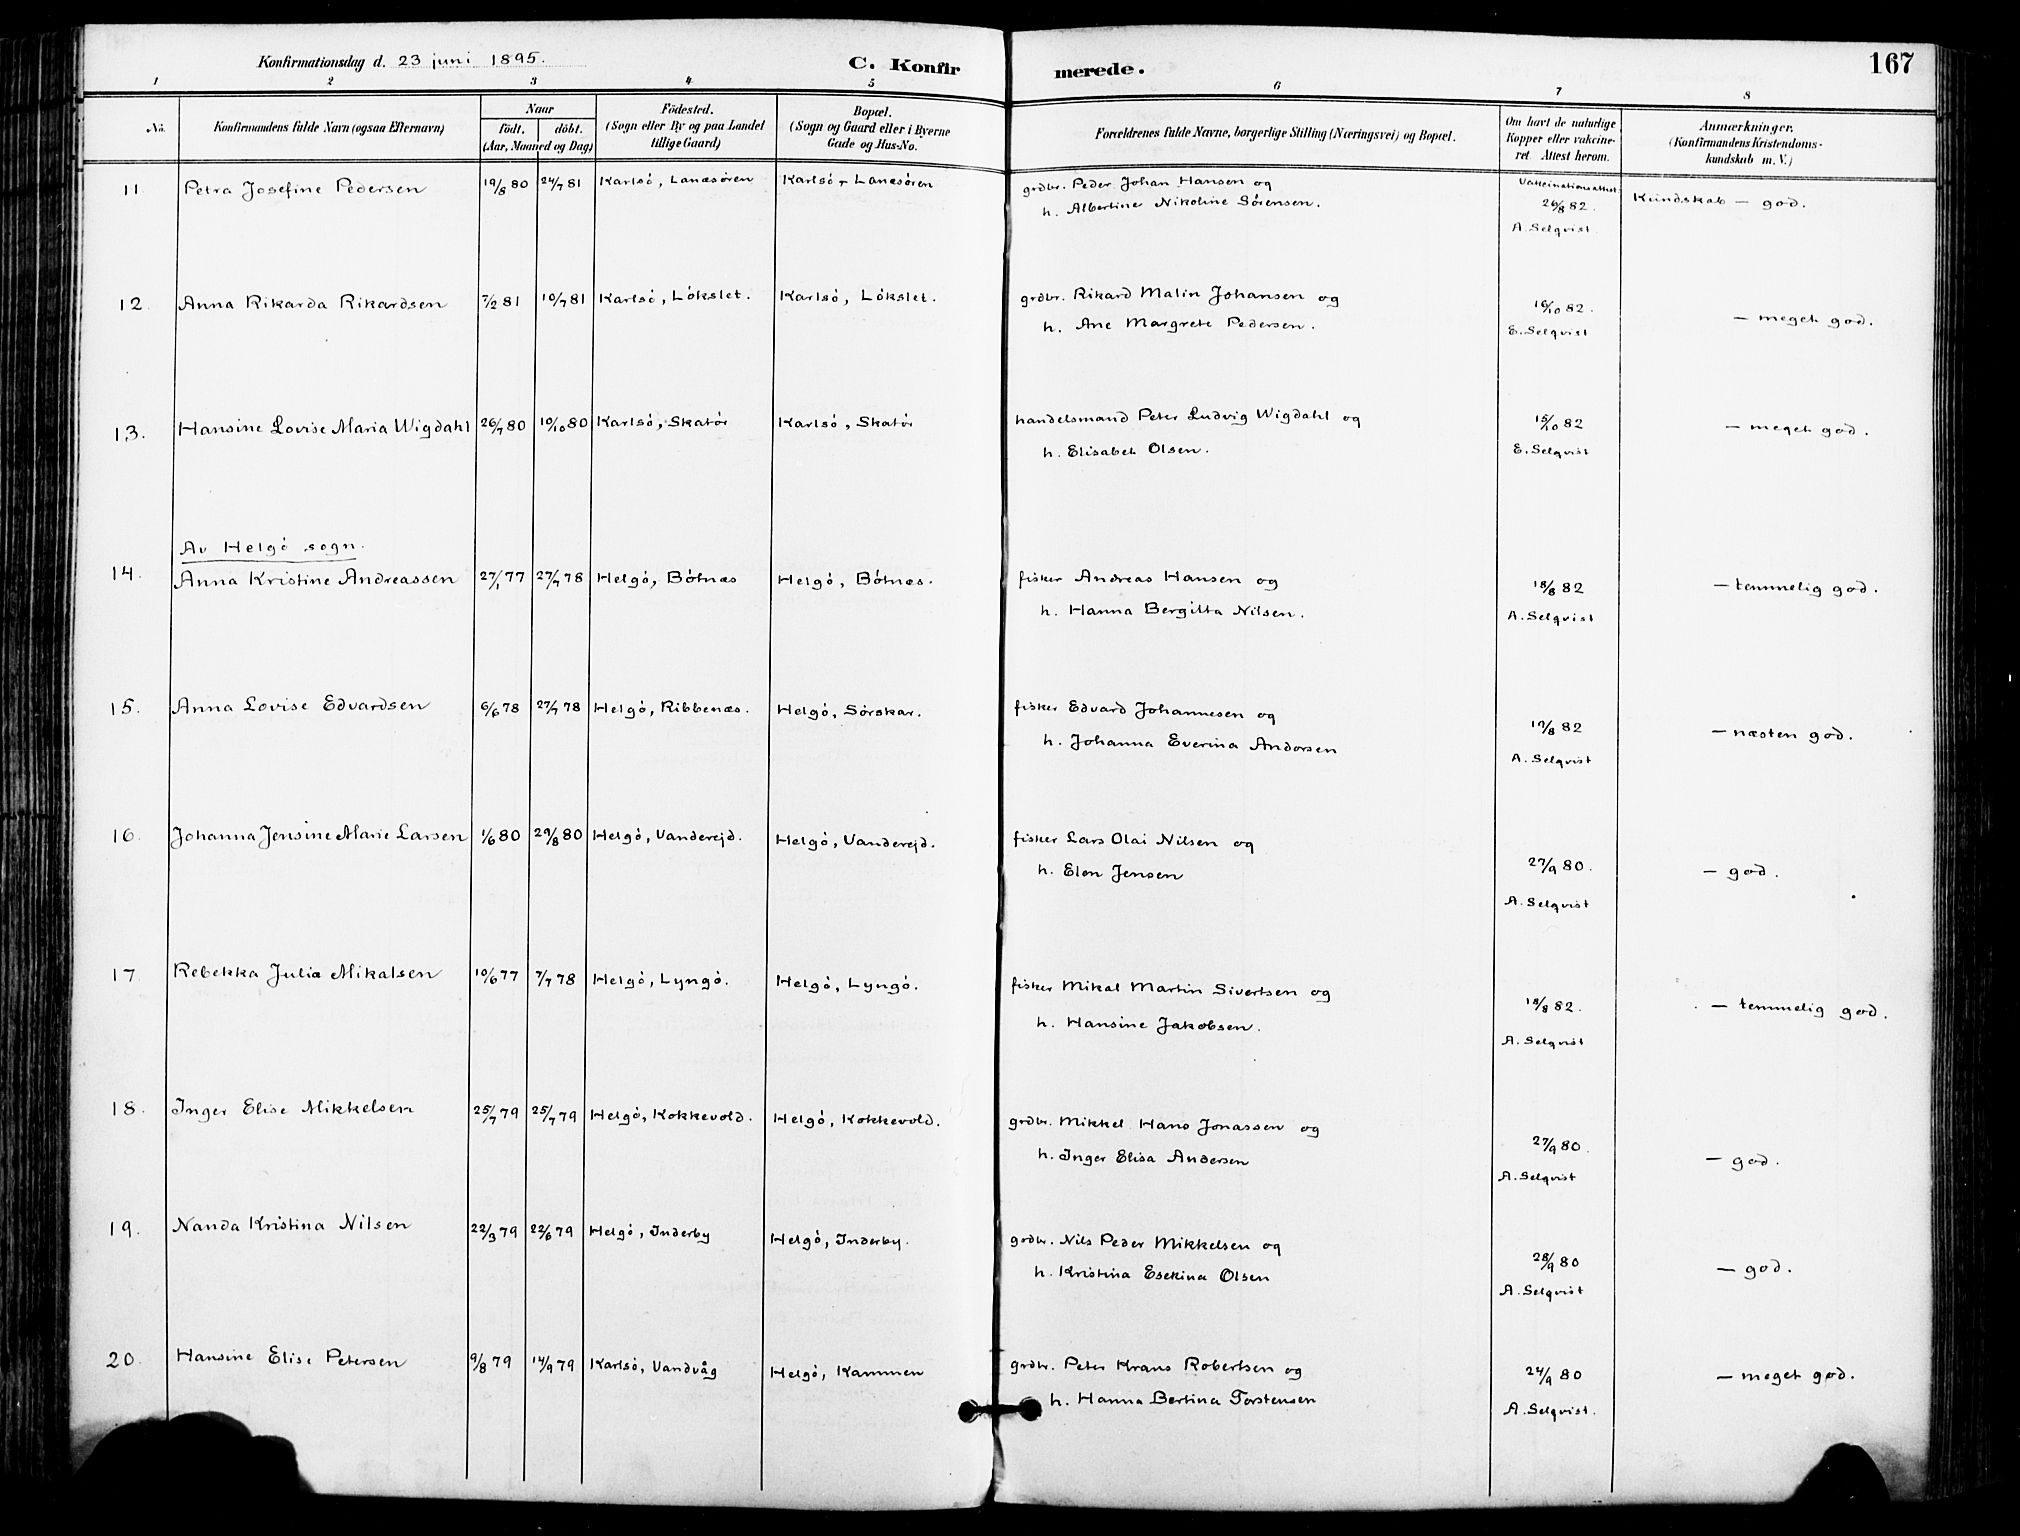 Konfirmationsdag d. 23 juni 1895.
C. Konfirmerede.
167
1 2 3 4 5 6 7 8
No.
Konfirmandens fulde Navn (ogsaa Efternavn)
Naar
födt. döbt.
(Aar, Maaned og Dag)
Födested.
(Sogn eller By og paa Landet
tillige Gaard)
Bopæl.
(Sogn og Gaard eller i Byerne
Gade og Hus-No.
Forældrenes fulde Navne, borgerlige Stilling (Næringsvei) og Bopæl.
Om havt de naturlige
Kopper eller vakcine-
ret Attest herom.
Anmærkninger.
(Konfirmandens Kristendoms-
kundskab m. V.)
11. Petra Josefine Pedersen 19/8 80 24/7 81 Karlsö, Lanæsören Karlsö, Lanæsören grdbr. Peder Johan Hansen og Vakcinationsattest
h. Albertine Nikoline Sörensen. 26/8 82. Kundskab — god.
A. Selqvist.
12. Anna Rikarda Rikardsen 7/2 81 10/7 81 Karlsö, Lökslet. Karlsö, Lökslet. grdbr. Rikard Malin Johansen og 16/10 82.
h. Ane Margrete Pedersen. E. Selqvist — meget god.
13. Hansine Lovise Maria Wigdahl 26/7 80 10/10 80 Karlsö, Skatör Karlsö, Skatör handelsmand Peter Ludvig Wigdahl og 15/10 82 — meget god.
h. Elisabet Olsen. E. Selqvist
Av Helgö sogn.
14. Anna Kristine Andreassen 27/1 77 27/7 78 Helgö, Bötnæs Helgö, Bötnæs. fisker Andreas Hansen og 18/8 82 — temmelig god.
h. Hanna Bergitta Nilsen. A. Selqvist
15. Anna Lovise Edvardsen 6/6 78 27/7 78 Helgö, Ribbenæs. Helgö, Sörskar. fisker Edvard Johannesen og 19/8 82 — næsten god.
h. Johanna Everina Andorsen A. Selqvist
16. Johanna Jensine Marie Larsen 1/6 80 29/8 80 Helgö, Vanderejd. Helgö, Vanderejd. fisker Lars Olai Nilsen og 27/9 80. — god.
h. Elen Jensen A. Selqvist
17. Rebekka Julia Mikalsen 10/6 77 7/7 78 Helgö, Lyngö. Helgö, Lyngö. fisker Mikal Martin Sivertsen og 18/8 82. — temmelig god.
h. Hansine Jakobsen. A. Selqvist
18. Inger Elise Mikkelsen 25/7 79 25/7 79 Helgö, Kokkevold. Helgö, Kokkevold. grdbr. Mikkel Hans Jonassen og 27/9 80.
h. Inger Elisa Andersen A. Selqvist — god.
19. Nanda Kristina Nilsen 22/3 79 22/6 79 Helgö, Inderby Helgö, Inderby. grdbr. Nils Peder Mikkelsen og 28/9 80 — god.
h. Kristina Esekina Olsen A. Selqvist
20. Hansine Elise Petersen 9/8 79 14/9 79 Karlsö, Vandvåg Helgö, Kammen grdbr. Peter Krans Robertsen og 24/9 80 — meget god.
h. Hanna Bertina Torstensen A. Selqvist.